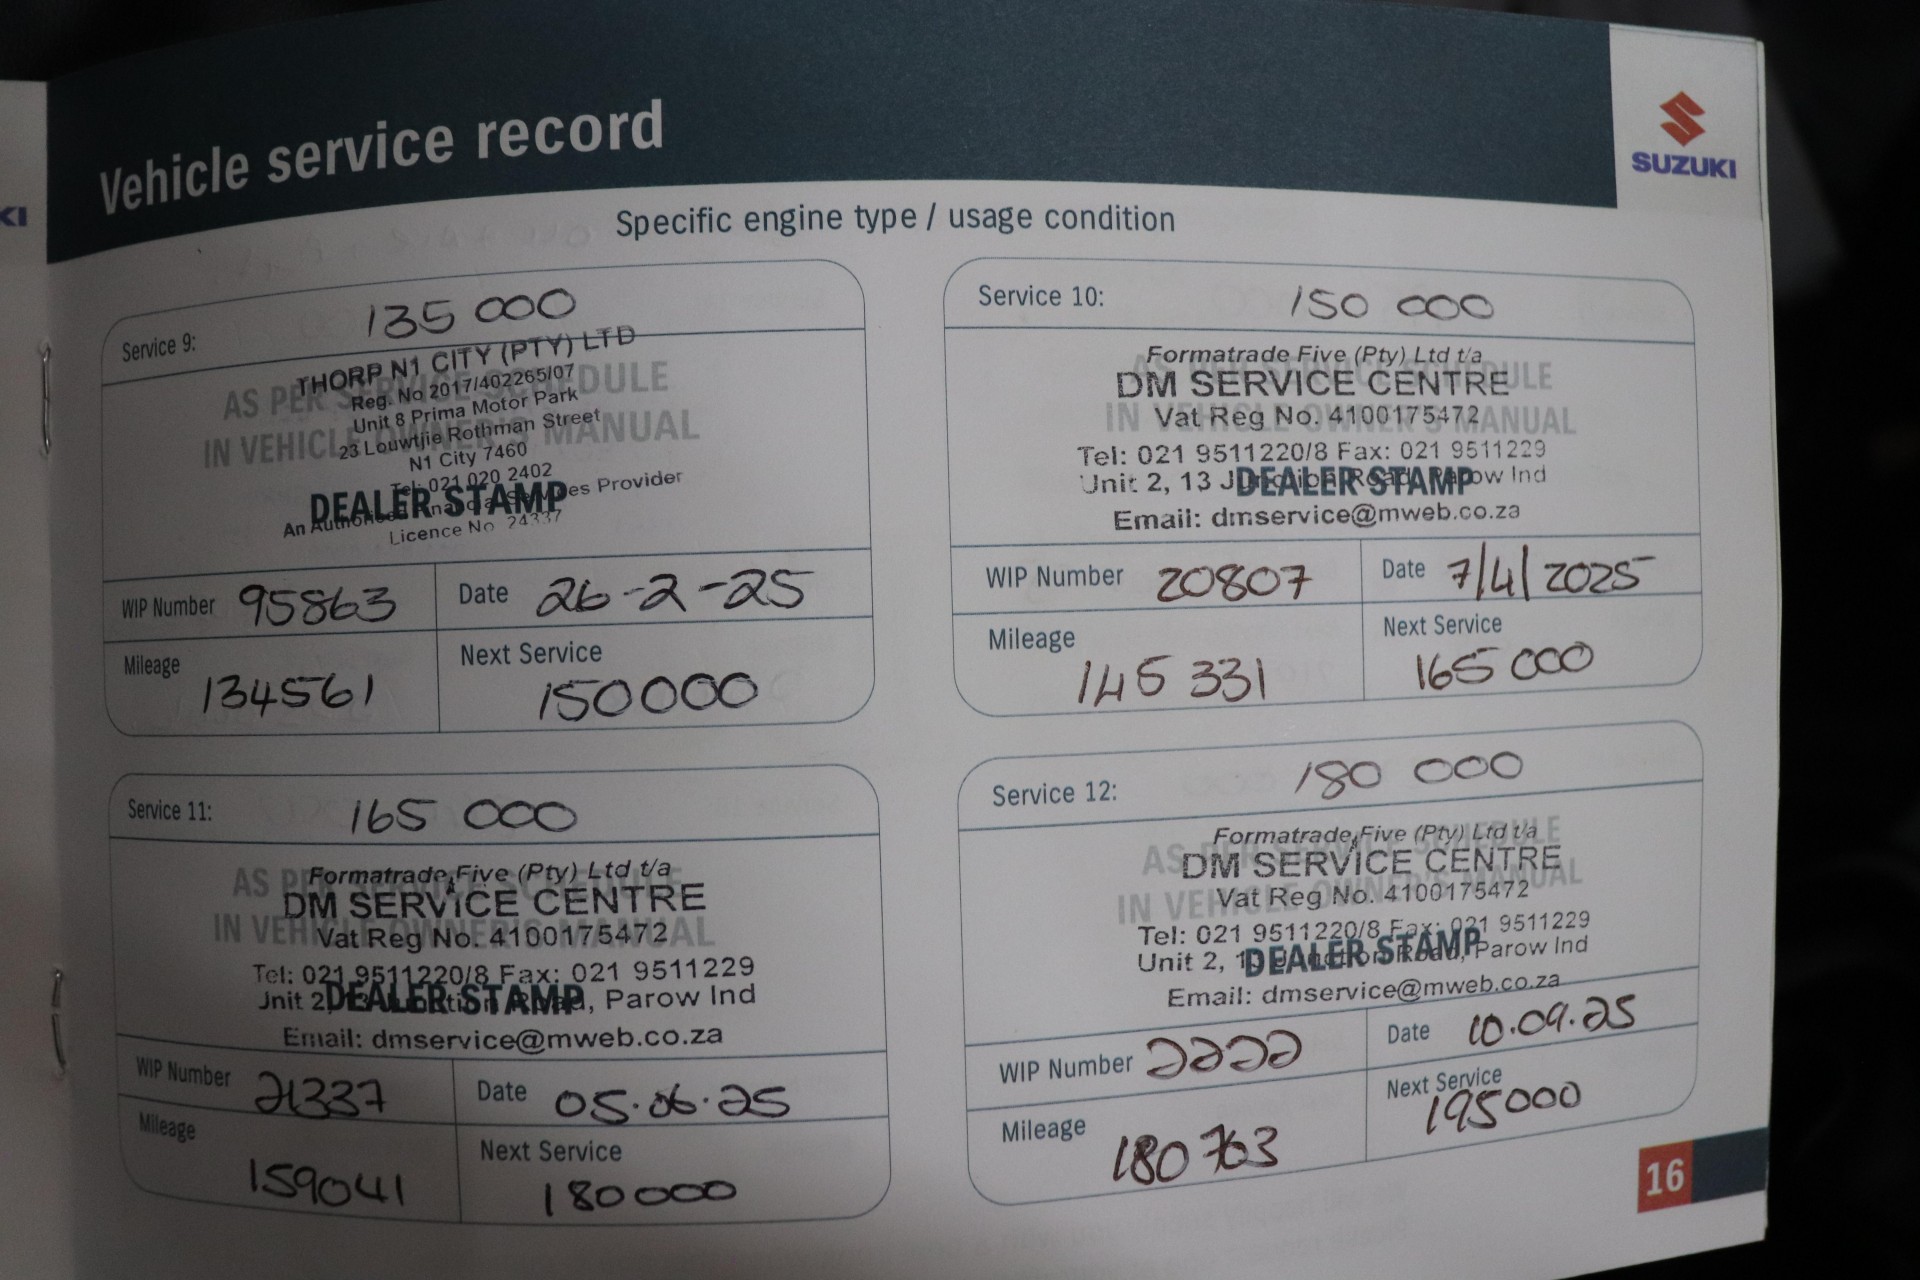 KI
Vehicle service record
SUZUKI
Specific engine type / usage condition
Service 9: 135 000
AS PER SERVICE SCHEDULE
IN VEHICLE OWNER'S MANUAL
DEALER STAMP
THORP N1 CITY (PTY) LTD
Reg. No 2017/402265/07
Unit 8 Prima Motor Park
23 Louwtjie Rothman Street
N1 City 7460
Tel: 021 020 2402
An Authorised Financial Services Provider
Licence No 24337
WIP Number 95863
Date 26-2-25
Mileage 134561
Next Service 150000
Service 10: 150 000
AS PER SERVICE SCHEDULE
IN VEHICLE OWNER'S MANUAL
DEALER STAMP
Formatrade Five (Pty) Ltd t/a
DM SERVICE CENTRE
Vat Reg No. 4100175472
Tel: 021 9511220/8 Fax: 021 9511229
Unit 2, 13 Junction Road, Parow Ind
Email: dmservice@mweb.co.za
WIP Number 20807
Date 7/4/2025
Mileage 145 331
Next Service 165 000
Service 11: 165 000
AS PER SERVICE SCHEDULE
IN VEHICLE OWNER'S MANUAL
DEALER STAMP
Formatrade Five (Pty) Ltd t/a
DM SERVICE CENTRE
Vat Reg No. 4100175472
Tel: 021 9511220/8 Fax: 021 9511229
Unit 2, 13 Junction Road, Parow Ind
Email: dmservice@mweb.co.za
WIP Number 21337
Date 05.06.25
Mileage 159041
Next Service 180000
Service 12: 180 000
AS PER SERVICE SCHEDULE
IN VEHICLE OWNER'S MANUAL
DEALER STAMP
Formatrade Five (Pty) Ltd t/a
DM SERVICE CENTRE
Vat Reg No. 4100175472
Tel: 021 9511220/8 Fax: 021 9511229
Unit 2, 13 Junction Road, Parow Ind
Email: dmservice@mweb.co.za
WIP Number 2222
Date 10.09.25
Mileage 180763
Next Service 195000
16